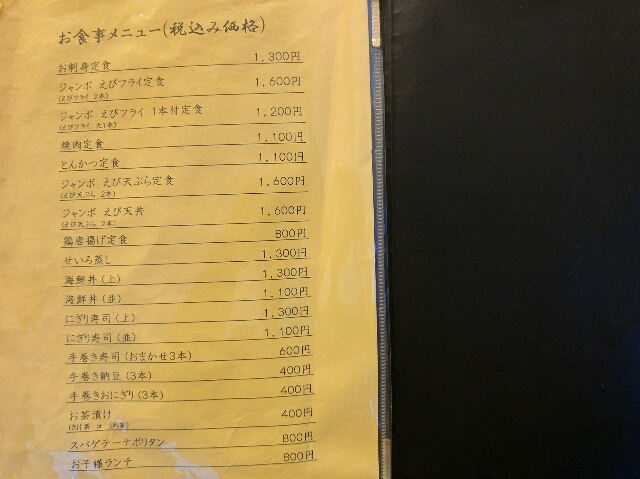 お食事メニュー(税込み価格)
お刺身定食 1,300円
ジャンボ えびフライ定食 1,600円
(えびフライ 2本)
ジャンボ えびフライ 1本付定食 1,200円
(えびフライ 大1本)
焼肉定食 1,100円
とんかつ定食 1,100円
ジャンボ えび天ぷら定食 1,600円
(えび天ぷら 2本)
ジャンボ えび天丼 1,600円
(えび天ぷら 2本)
鶏唐揚げ定食 800円
せいろ蒸し 1,300円
海鮮丼(上) 1,300円
海鮮丼(並) 1,100円
にぎり寿司(上) 1,300円
にぎり寿司(並) 1,100円
手巻き寿司(おまかせ3本) 600円
手巻き納豆(3本) 400円
手巻きおにぎり(3本) 400円
お茶漬け 400円
(さけ茶 or
スパゲテーナポリタン 800円
お子様ランチ 800円